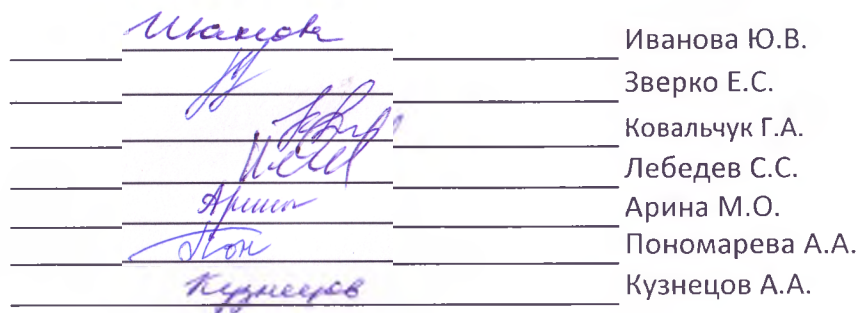 Иванова Ю.В.
Зверко Е.С.
Ковальчук Г.А.
Лебедев С.С.
Арина М.О.
Пон Пономарева А.А.
Кузнецов Кузнецов А.А.